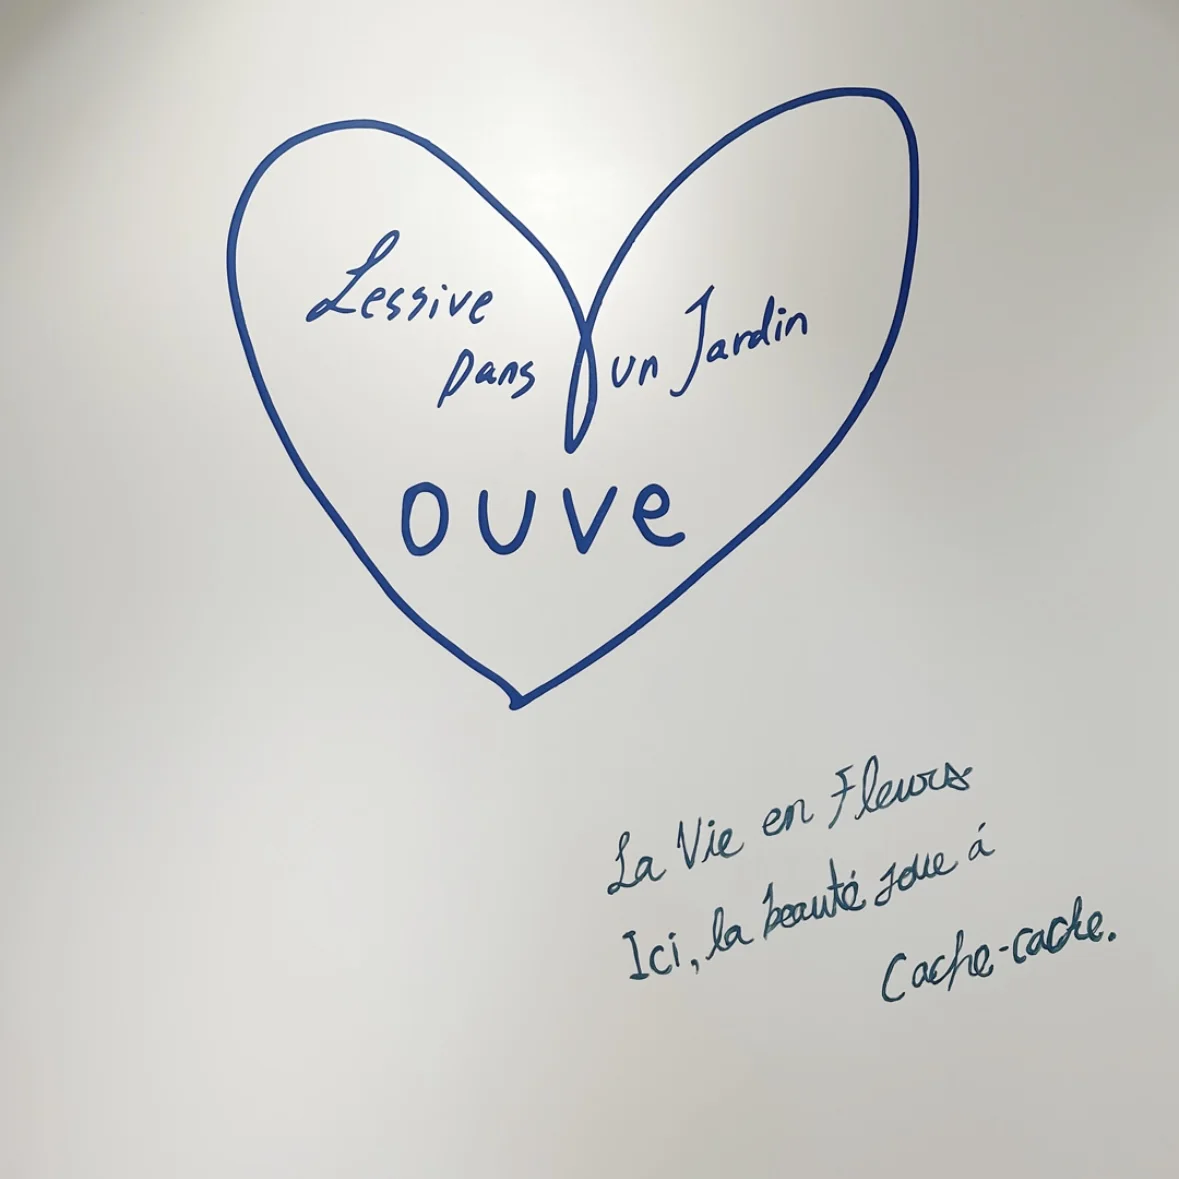 Lessive
Dans un Jardin
ouve
La Vie en Fleurs
Ici, la beauté joue á
Cache-cache.